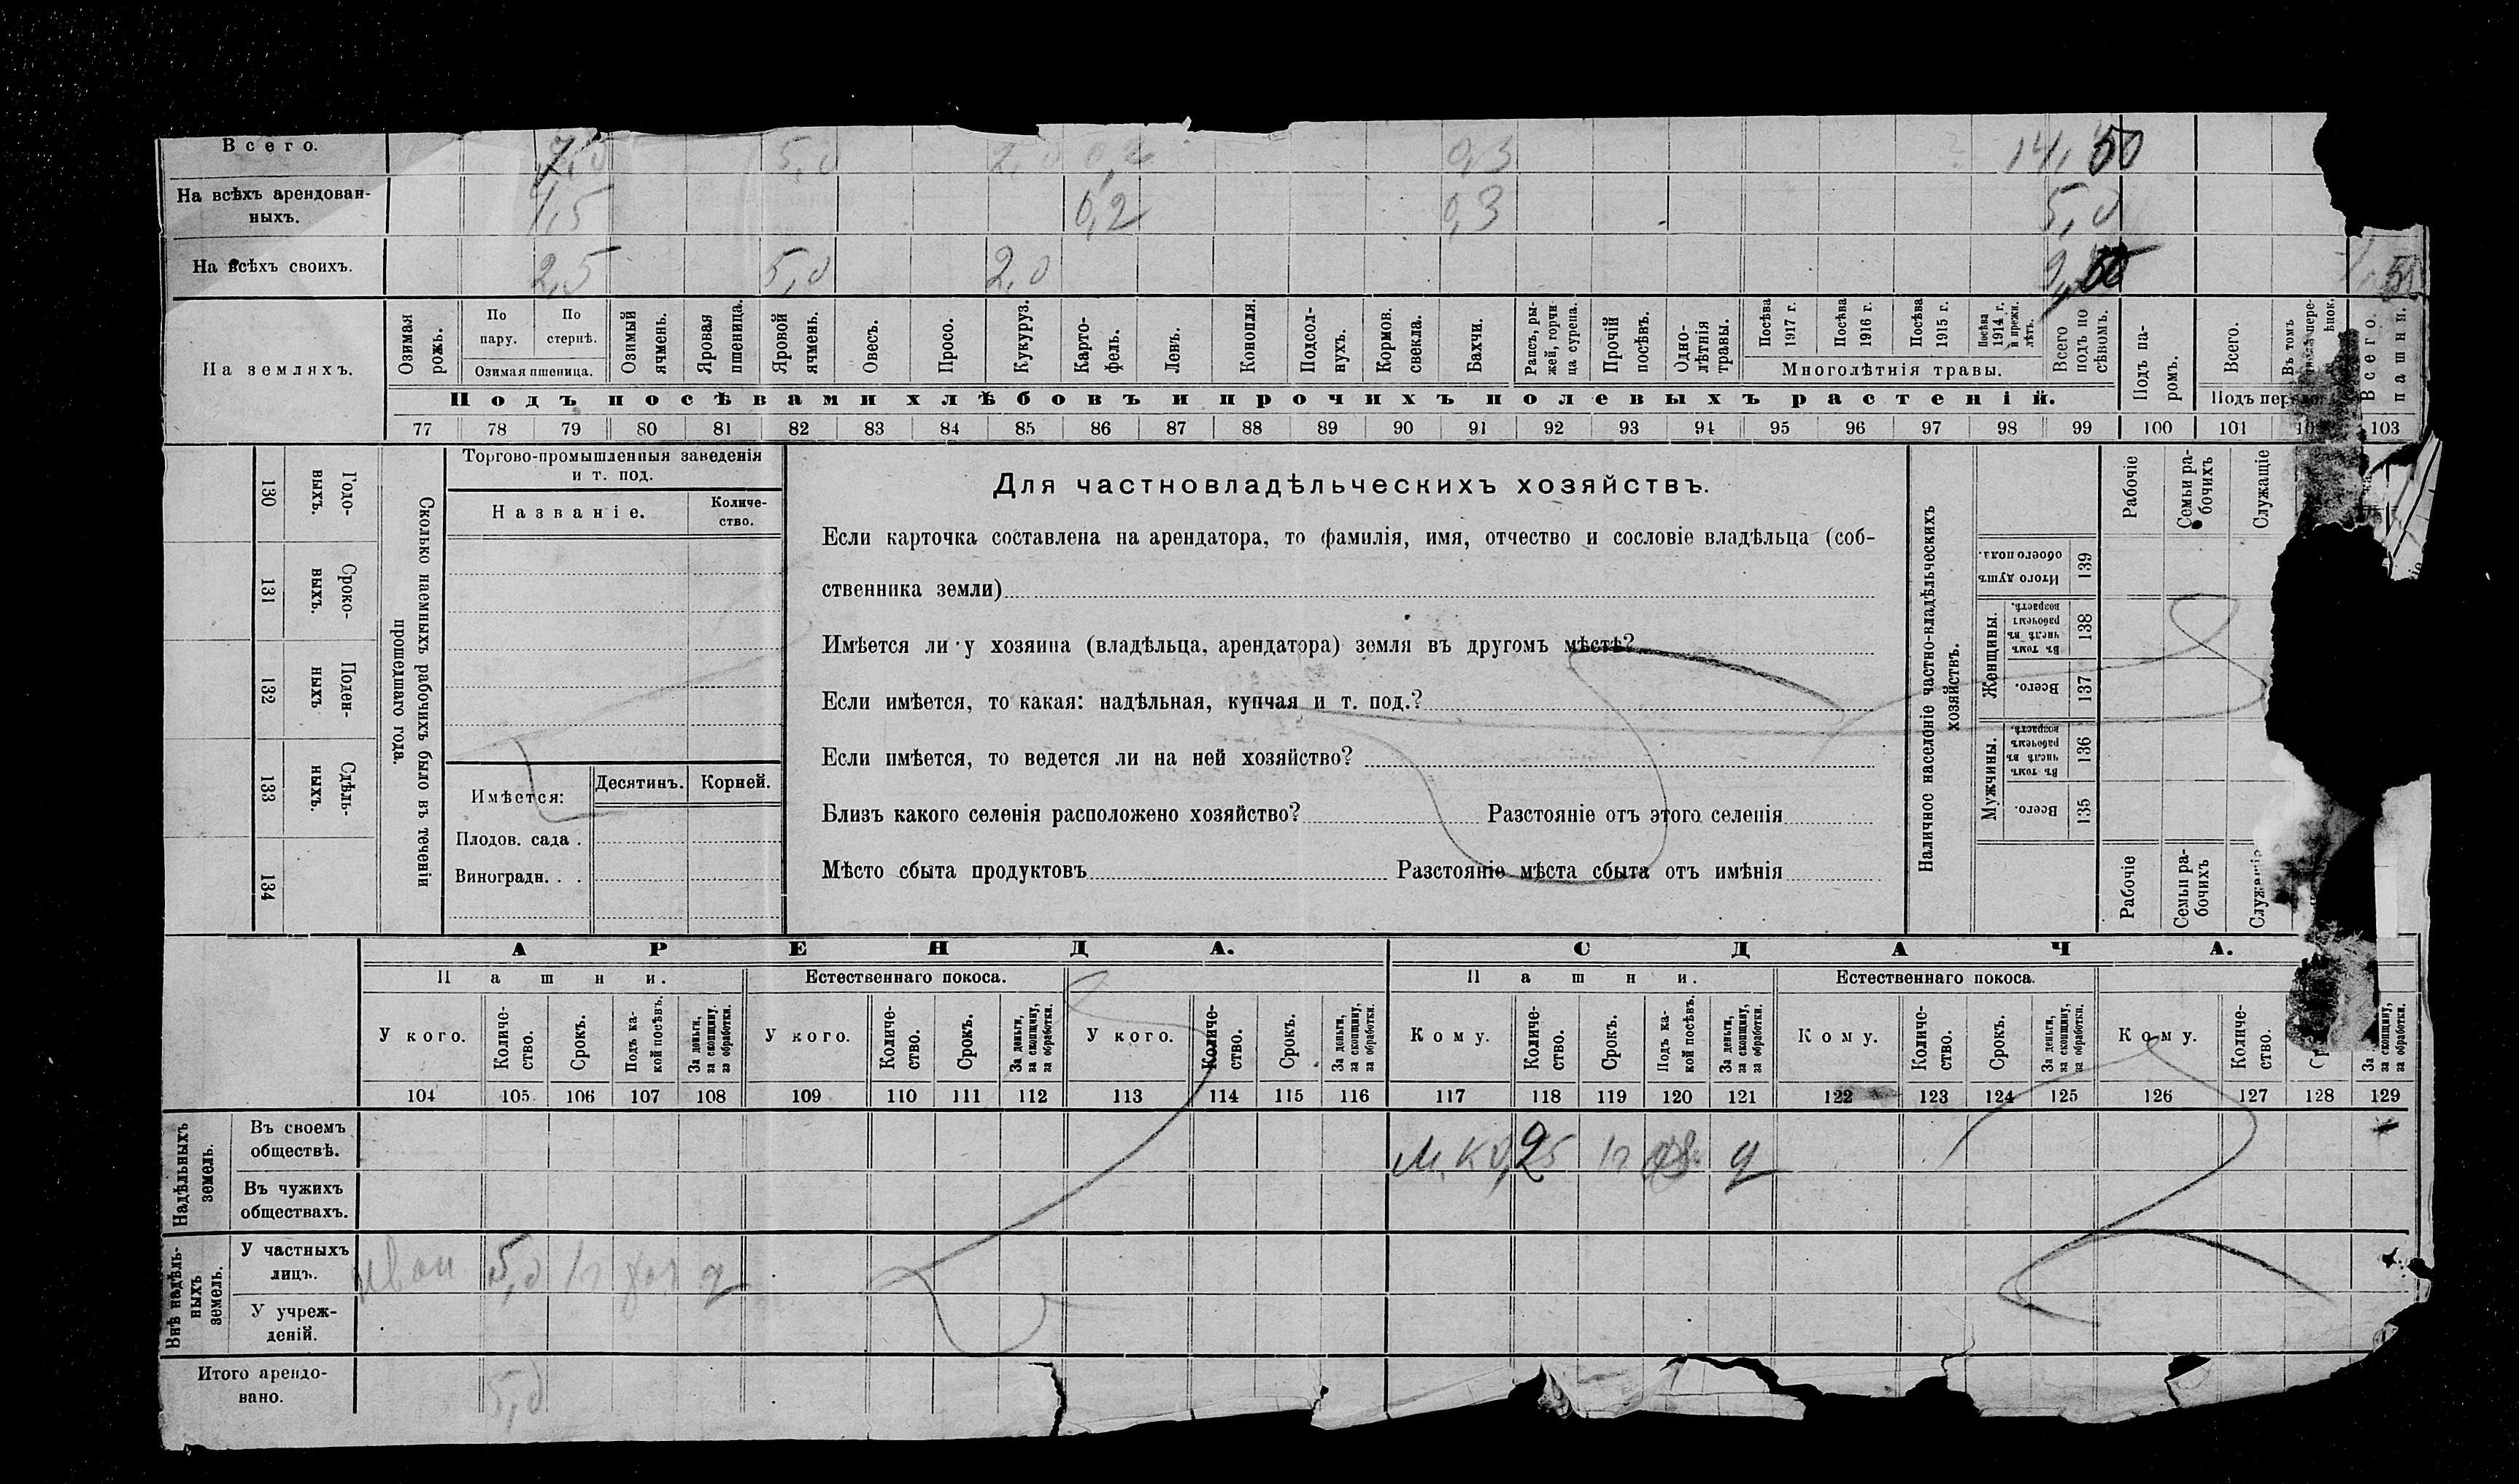 Всего. 7,0 5,0 2,0 0,2 0,3 14,50
На всѣхъ арендован-
ныхъ. 4,5 0,2 0,3 5,0
На всѣхъ своихъ. 2,5 5,0 2,0
На земляхъ.
Озимая рожь.
По пару.
По стернѣ.
Озимая пшеница.
Озимый ячмень.
Яровая пшеница.
Яровой ячмень.
Овесъ.
Просо.
Кукуруз.
Карто-
фель.
Ленъ.
Конопля.
Подсол-
нухъ.
Кормов. свекла.
Бахчи.
Рапсъ, ры-
жей, горчи
ца сурепа.
Прочій посѣвъ.
Одно-
лѣтнія травы.
Посѣва 1917 г.
Посѣва 1916 г.
Посѣва 1915 г.
Посѣва 1914 г. и прежн. лѣтъ.
Многолѣтнія травы.
Всего подъ по
сѣвомъ.
Подъ па-
ромъ.
Всего.
Въ томъ
Всего пашни.
Подъ посѣвами хлѣбовъ и прочихъ полевыхъ растеній.
77 78 79 80 81 82 83 84 85 86 87 88 89 90 91 92 93 94 95 96 97 98 99 100 101 103
130 Годо-
выхъ.
131 Сроко-
выхъ.
132 Поден-
ныхъ
133 Сдѣль-
ныхъ.
134
Сколько наемныхъ рабочихъ было въ теченіи
прошедшаго года.
Торгово-промышленныя заведенія
и т. под.
Названіе.
Количе-
ство.
Имѣется:
Десятинъ. Корней.
Плодов. сада .
Виноградн. . .
Для частновладѣльческихъ хозяйствъ.
Если карточка составлена на арендатора, то фамилія, имя, отчество и сословіе владѣльца (соб-
ственника земли)
Имѣется ли у хозяина (владѣльца, арендатора) земля въ другомъ мѣстѣ?
Если имѣется, то какая: надѣльная, купчая и т. под.?
Если имѣется, то ведется ли на ней хозяйство?
Близъ какого селенія расположено хозяйство? Разстояніе отъ этого селенія
Мѣсто сбыта продуктовъ Разстояніе мѣста сбыта отъ имѣнія
Наличное населеніе частно-владѣльческихъ
хозяйствъ.
Рабочіе
Семьи ра-
бочихъ
Служащіе
Итого душъ обоего пола. 139
Женщины.
Въ томъ числѣ въ рабочемъ возрастѣ. 138
Всего. 137
Мужчины.
Въ томъ числѣ въ рабочемъ возрастѣ. 136
Всего. 135
Рабочіе
Семьи ра-
бочихъ
АРЕНДА. СДАЧА.
Пашни. Естественнаго покоса. Пашни. Естественнаго покоса.
У кого.
Количе-
ство.
Срокъ.
Подъ ка-
кой посѣвъ.
За деньги,
за скопщину,
за обработки.
У кого.
Количе-
ство.
Срокъ.
За деньги,
за скопщину,
за обработки.
У кого.
Количе-
ство.
Срокъ.
За деньги,
за скопщину,
за обработки.
Кому.
Количе-
ство.
Срокъ.
Подъ ка-
кой посѣвъ.
За деньги,
за скопщину,
за обработки.
Кому.
Количе-
ство.
Срокъ.
За деньги,
за скопщину,
за обработки.
Кому.
Количе-
ство.
За
за скопщину,
за обработки.
104 105 106 107 108 109 110 111 112 113 114 115 116 117 118 119 120 121 122 123 124 125 126 127 128 129
Надѣльныхъ
земель.
Въ своемъ
обществѣ.
Въ чужихъ
обществахъ.
Внѣ надѣль-
ныхъ
земель.
У частныхъ
лицъ. 5,0
У учреж-
деній.
Итого арендо-
вано. 5,0